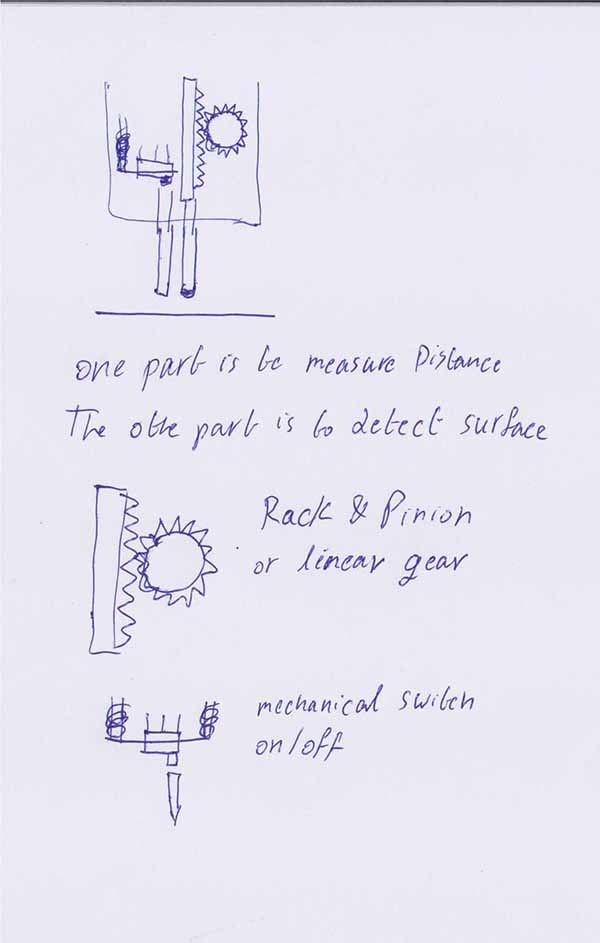 one part is be measure Distance
The othe part is to detect surface
Rack & Pinion
or linear gear
mechanical switch
on/off